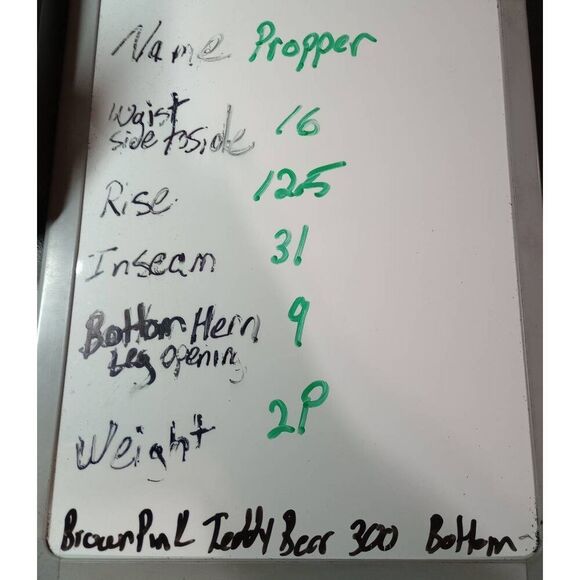 Name Propper
Waist
side to side 16
Rise 125
Inseam 31
Bottom Hem 9
Leg opening
Weight 2P
Brown Pink Teddy Bear 300 Bottom